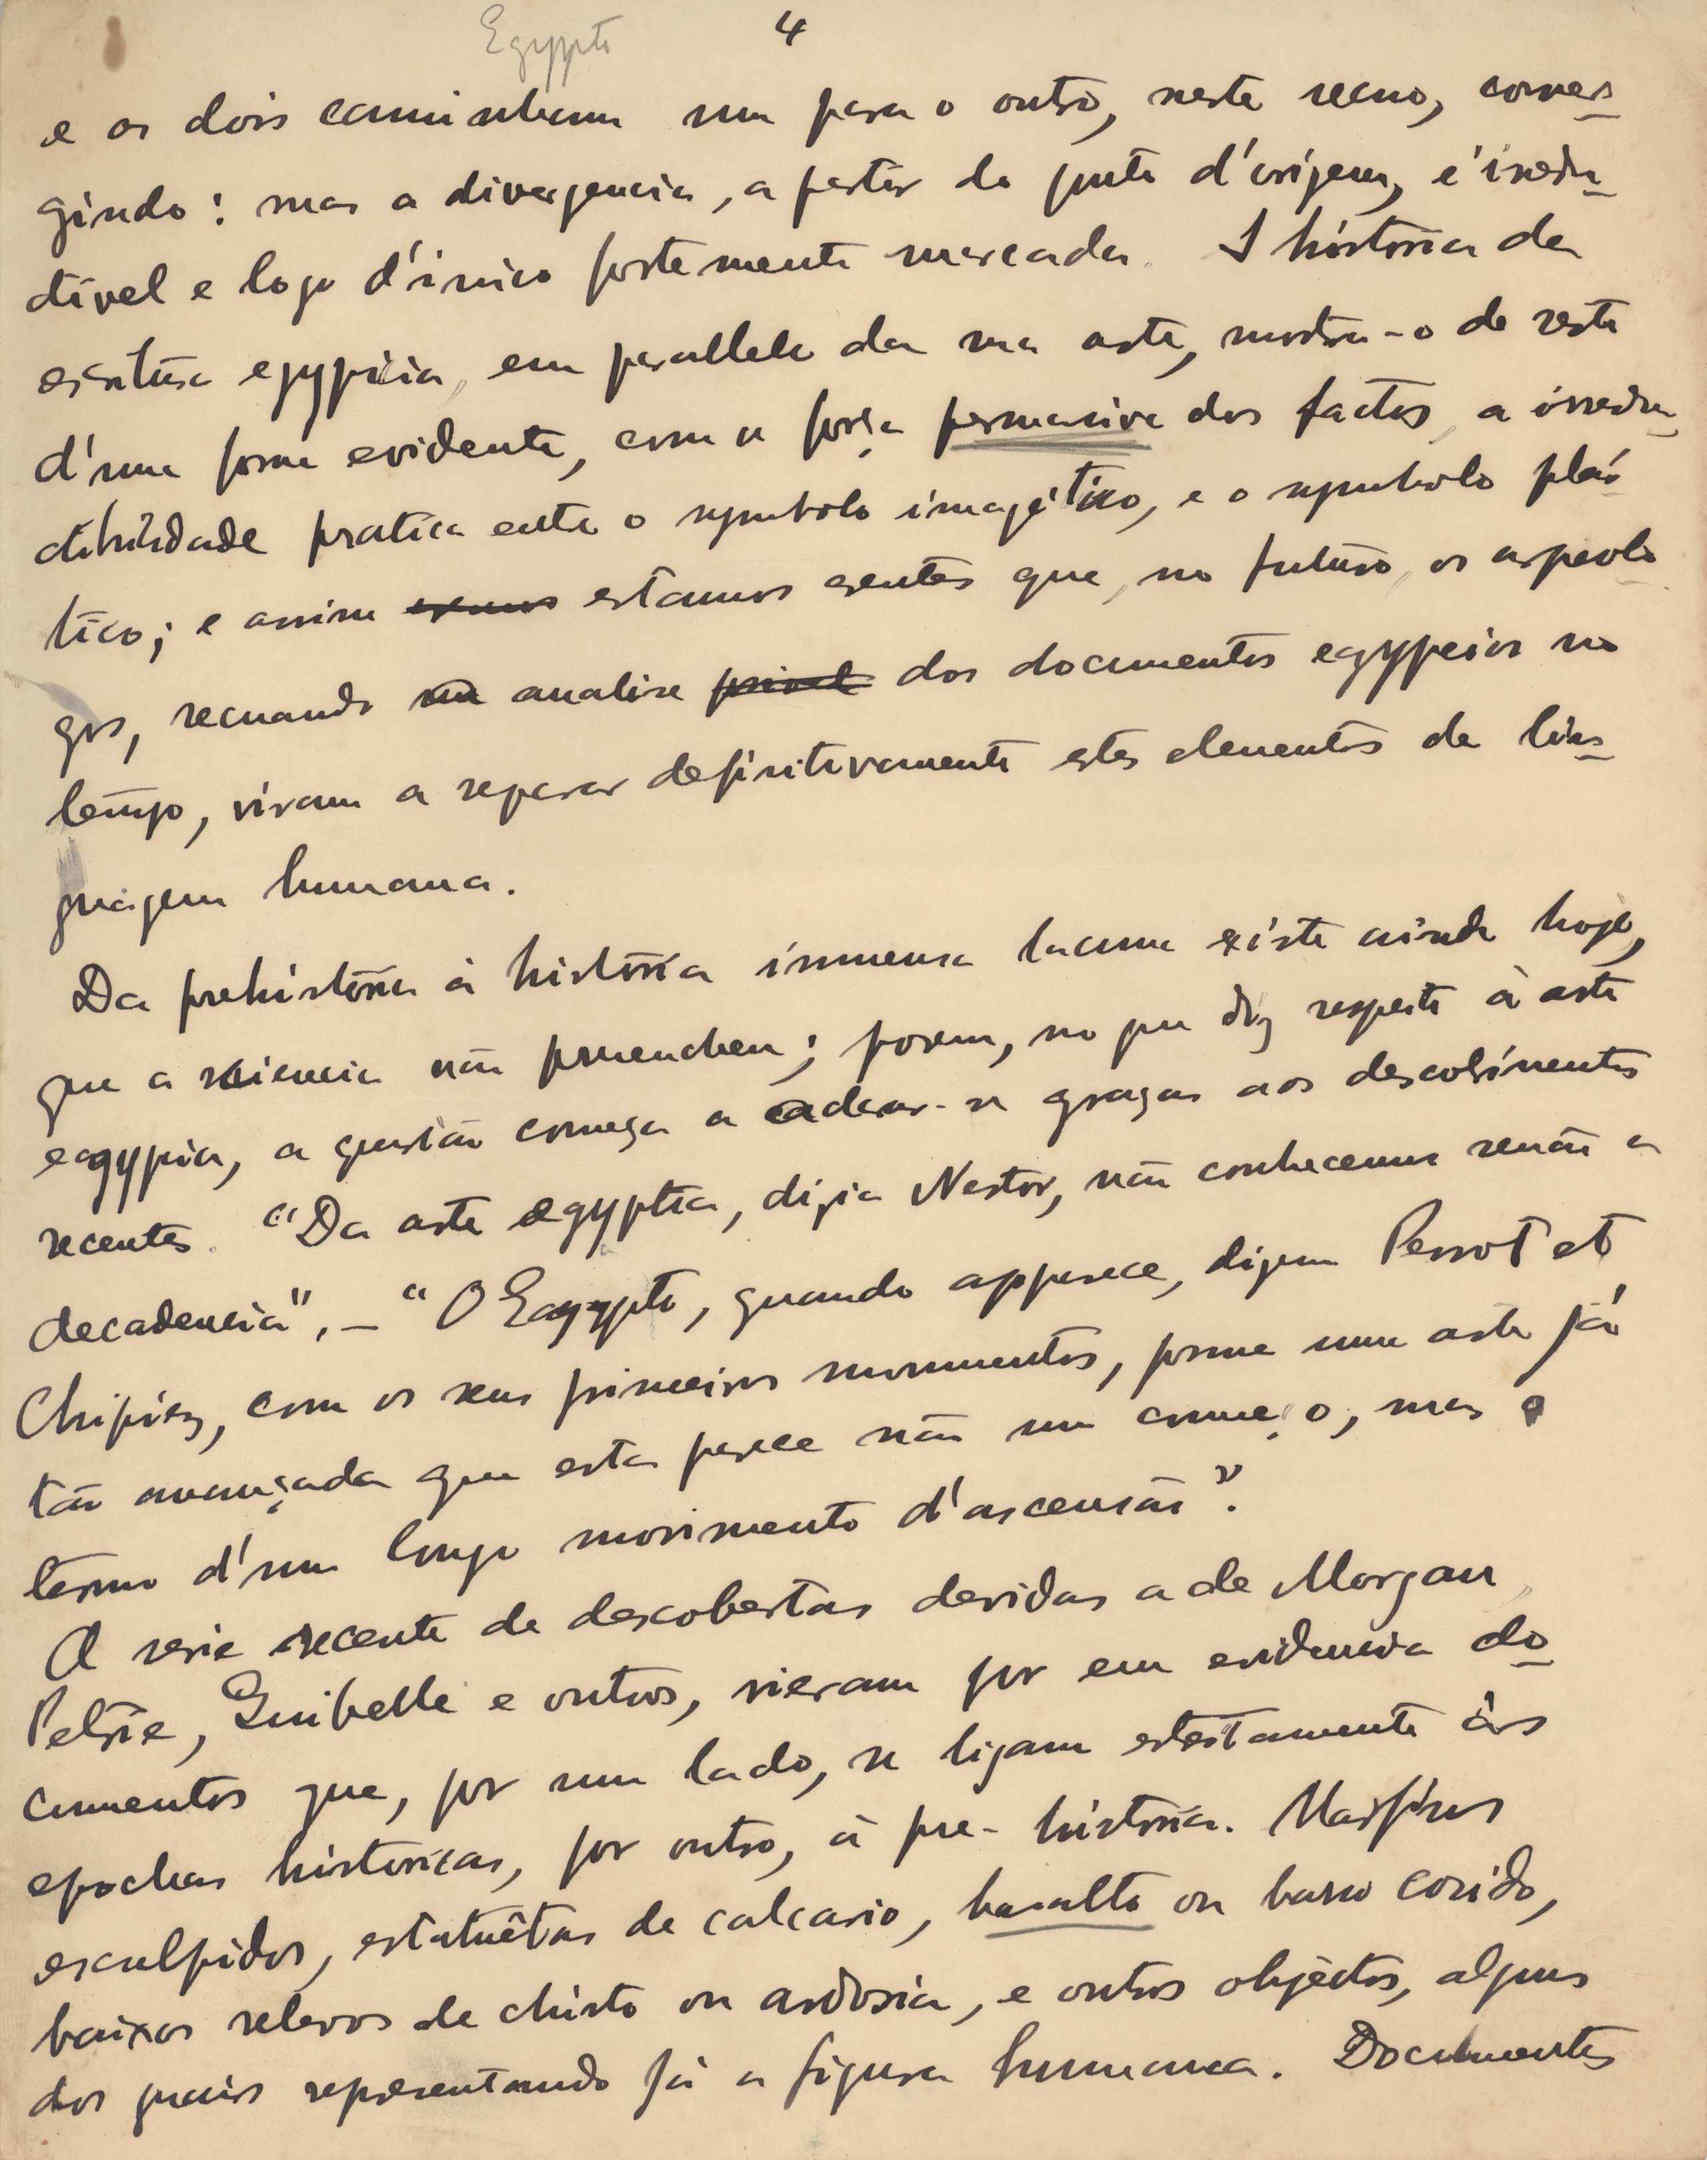 Egypto
4
e os dois caminham um para o outro, neste recuo, conver-
gindo: mas a divergencia, a partir do ponto d'origem, é irredu-
ctivel e logo d'inicio fortemente marcada. A historia da
escritura egypcia, em parallelo da sua arte, mostra-o de resto
d'uma forma evidente, com a força persuasiva dos factos, a irredu-
ctibilidade pratica entre o symbolo imagético, e o symbolo plás-
tico; e assim estamos crentes que, no futuro, os arqueolo-
gos, recuando na analise dos documentos egypcios no
tempo, viram a separar definitivamente estes elementos da lin-
guagem humana.
Da prehistoria á historia immensa lacuna existe ainda hoje,
que a sciencia não preencheu; porem, no que diz respeito á arte
egypcia, a questão começa a aclarar-se graças aos descobrimentos
recentes. "Da arte egyptia, dizia Nestor, não conhecemos senão a
decadencia", – "O Egypto, quando apparece, dizem Perrot et
Chipiez, com os seus primeiros monumentos, forma uma arte já
tão avançada que esta parece não um começo, mas o
termo d'um longo movimento d'ascensão".
A serie recente de descobertas devidas a de Morgan,
Petrie, Quibelle e outros, vieram por em evidencia do-
cumentos que, por um lado, se ligam estreitamente ás
epochas historicas, por outro, á pre-historia. Marfins
esculpidos, estatuêtas de calcario, basalto ou barro cosido,
baixos relevos de chisto ou ardosia, e outros objéctos, alguns
dos quais representando já a figura humana. Documentos